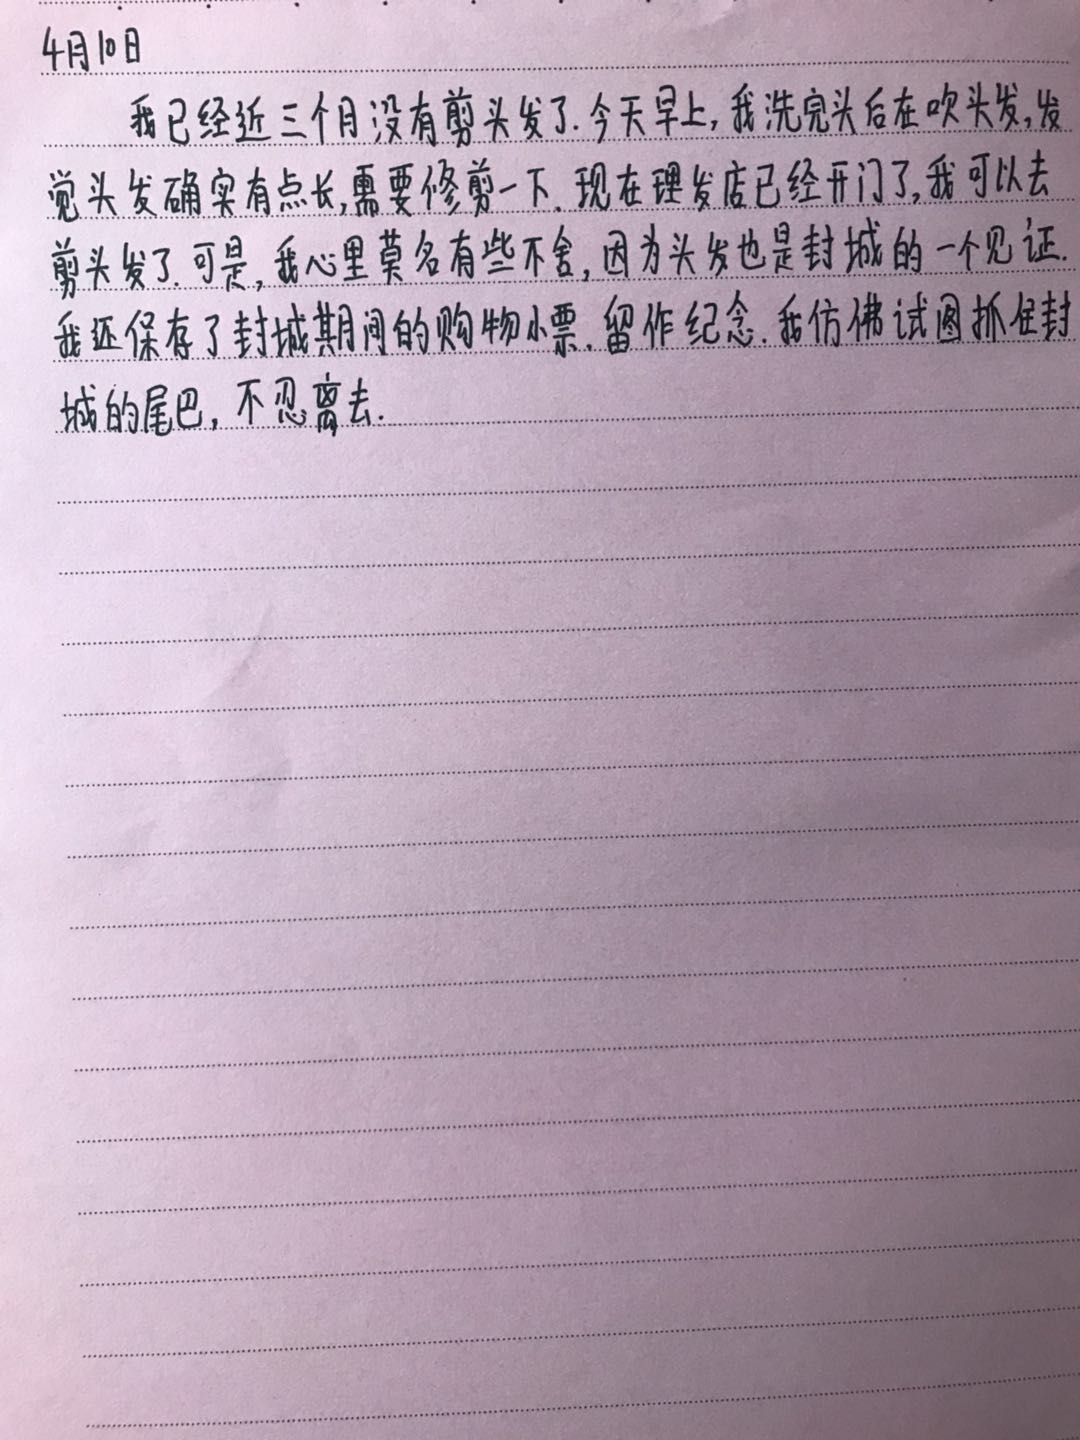 4月10日
我已经近三个月没有剪头发了.今天早上,我洗完头后在吹头发,发
觉头发确实有点长,需要修剪一下.现在理发店已经开门了,我可以去
剪头发了.可是,我心里莫名有些不舍,因为头发也是封城的一个见证.
我还保存了封城期间的购物小票.留作纪念.我仿佛试图抓住封
城的尾巴,不忍离去.